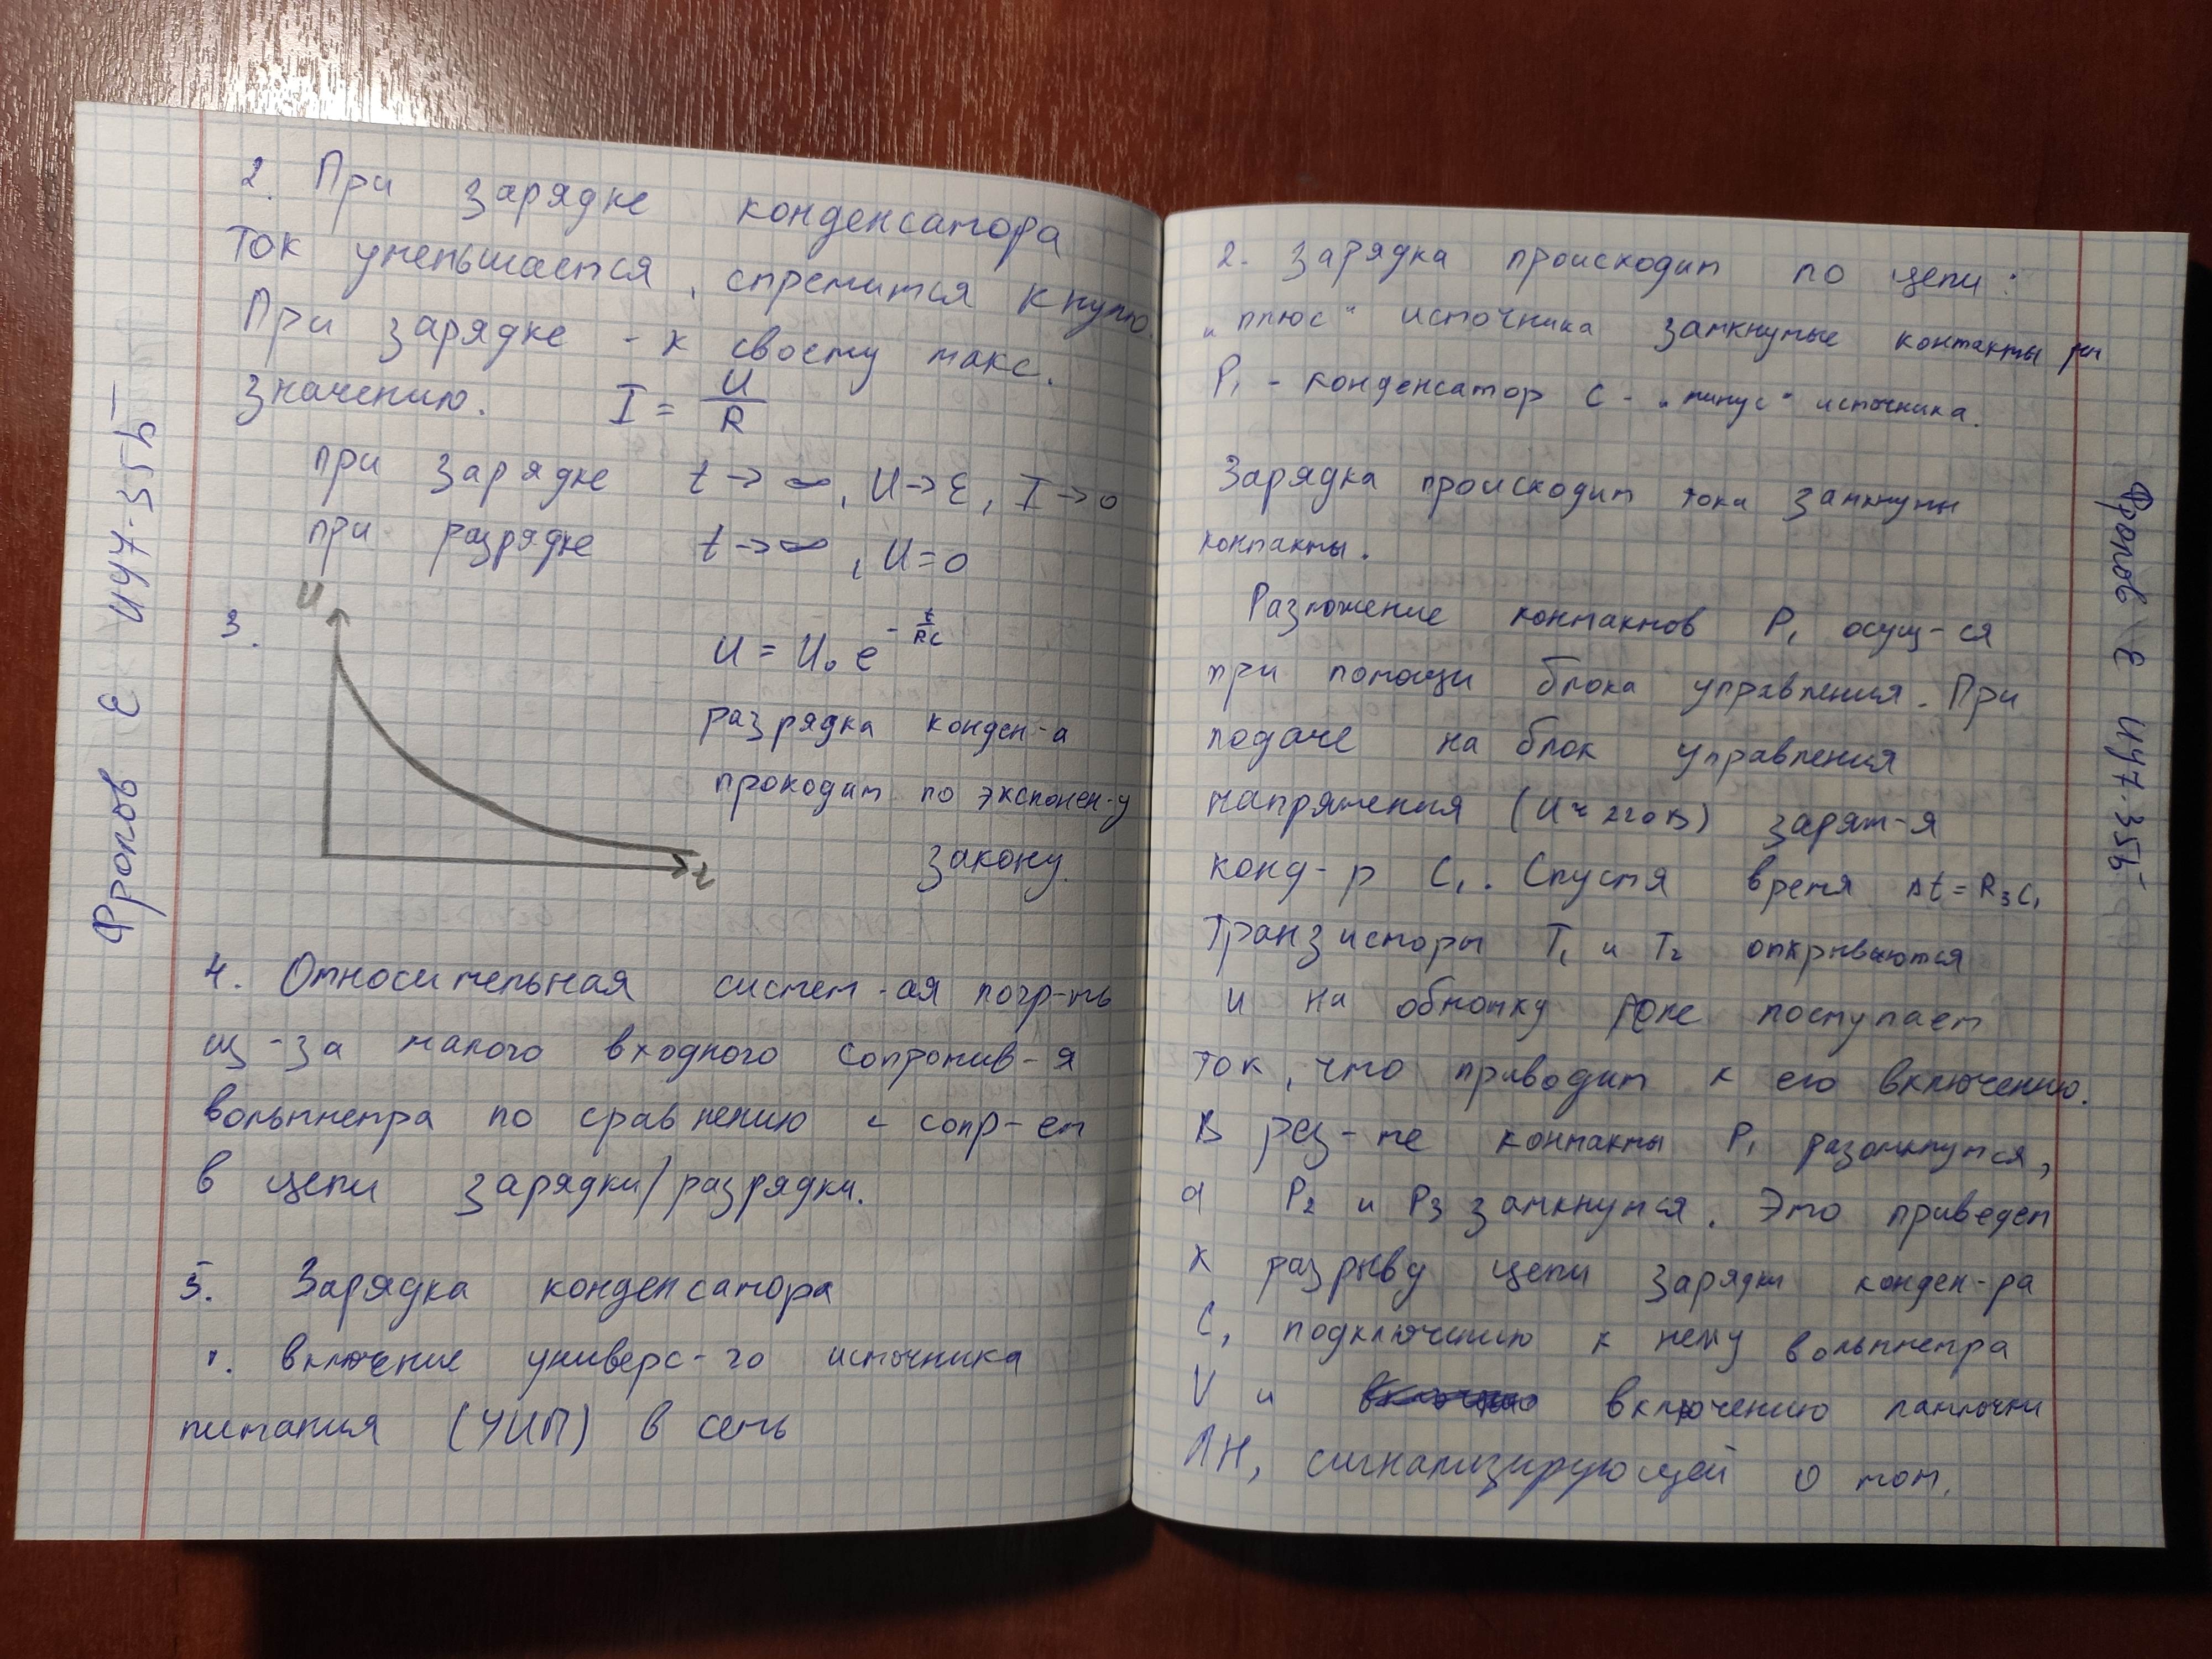 2. При зарядке конденсатора
ток уменьшается, стремится к нулю.
При зарядке - к своему макс.
значению. I = U/R
при зарядке t → ∞, U → ε, I → 0
при разрядке t → ∞, U = 0
3.
U
t
U = U₀ e^(-t/RC)
разрядка конден-а
проходит по экспонен-у
закону.
4. Относительная систем-ая погр-ть
из-за малого входного сопротив-я
вольтметра по сравнению с сопр-ем
в цепи зарядки/разрядки.
5. Зарядка конденсатора
1. включение универс-го источника
питания (УИП) в сеть
Фролов Е ИУ7-35Б
2. Зарядка происходит по цепи:
"плюс" источника замкнутые контакты реле
P₁ - конденсатор C - "минус" источника.
Зарядка происходит пока замкнуты
контакты.
Разложение контактов P₁ осущ-ся
при помощи блока управления. При
подаче на блок управления
напряжения (U ~ 220В) заряж-я
конд-р C₁. Спустя время Δt = R₃C₁
транзисторы T₁ и T₂ открываются
и на обмотку реле поступает
ток, что приводит к его включению.
В рез-те контакты P₁ разомкнутся,
а P₂ и P₃ замкнутся. Это приведет
к разрыву цепи зарядки конден-ра
C, подключению к нему вольтметра
V и включению лампочки
ЛН, сигнализирующей о том,
Фролов Е ИУ7-35Б